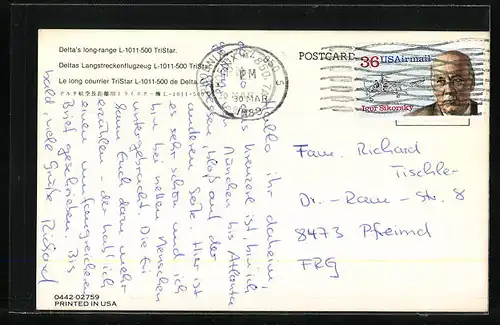 Delta's long-range L-1011-500 TriStar.
Deltas Langstreckenflugzeug L-1011-500 TriStar
Le long courrier TriStar L-1011-500 de Delta.
POSTCARD
36 USAirmail
Igor Sikorsky
PM
30 MAR
1989
Hallo ihr daheim,
ist, bin ich
München bis Atlanta
bloß auf der
anderen Seite. Hier ist
es sehr schön und ich
bin bei netten Menschen
untergebracht. Die Ei
kann Euch dann mehr
erzählen - der hab ich
einen umfangreichen
Brief geschrieben. Bis
bald, viele Grüße Richard
Fam. Richard
Tischler
Dr.-Rau-Str. 8
8473 Pfreimd
FRG
0442-02759
PRINTED IN USA